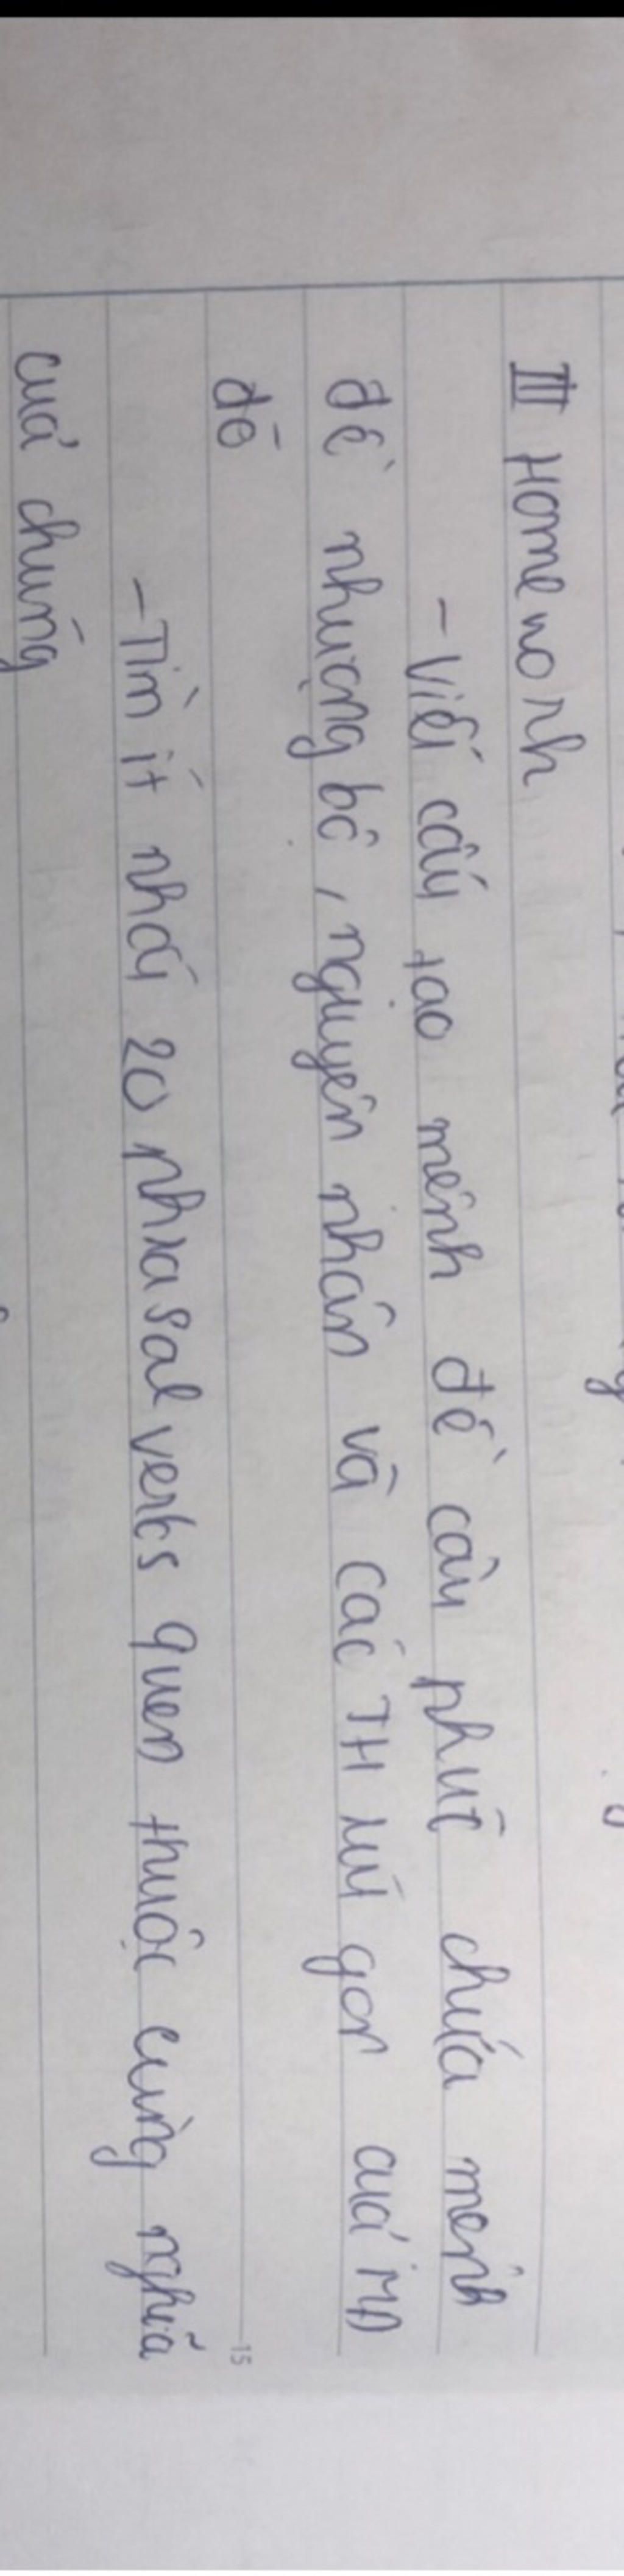 III Homework
- Viết cấu tạo mệnh đề câu phức chứa mệnh
đề nhượng bộ, nguyên nhân và các TH rút gọn của MĐ
đó
- Tìm ít nhất 20 phrasal verbs quen thuộc cùng nghĩa
của chúng
15